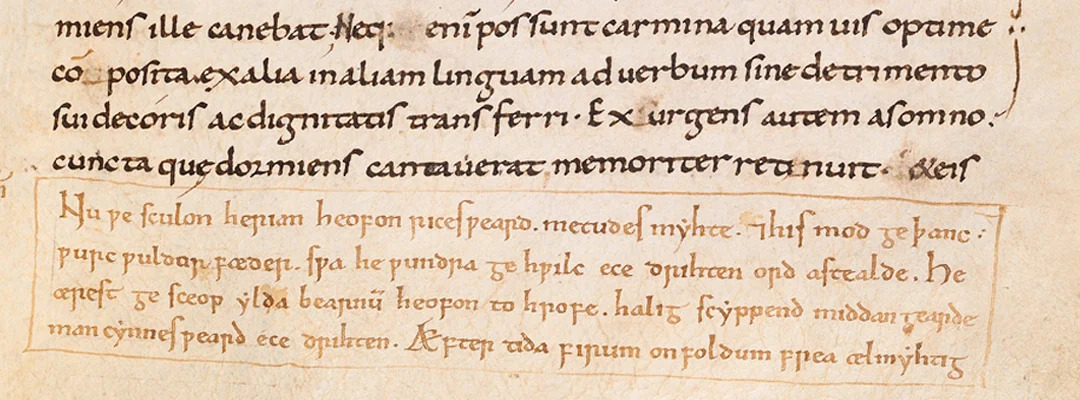 miens ille canebat. Neq; enī possunt carmina quamuis optime
cō posita. ex alia in aliam linguam ad verbum sine detrimento
sui decoris ac dignitatis transferri · Exurgens autem a somno.
cuncta quę dormiens cantaverat memoriter retinuit · & eis
Nu ƿe sculon herian heofon rices ƿeard . metudes myhte . ⁊ his mod ge þanc :
ƿurc ƿuldur fæder . sƿa he ƿundra ge hƿilc ece drihten ord astealde . He
ærest ge sceop ylda bearnū heofon to hrofe . halig scyppend middangearde
mancynnes ƿeard ece drihten . Æfter tida firum on foldum frea ælmyhtig